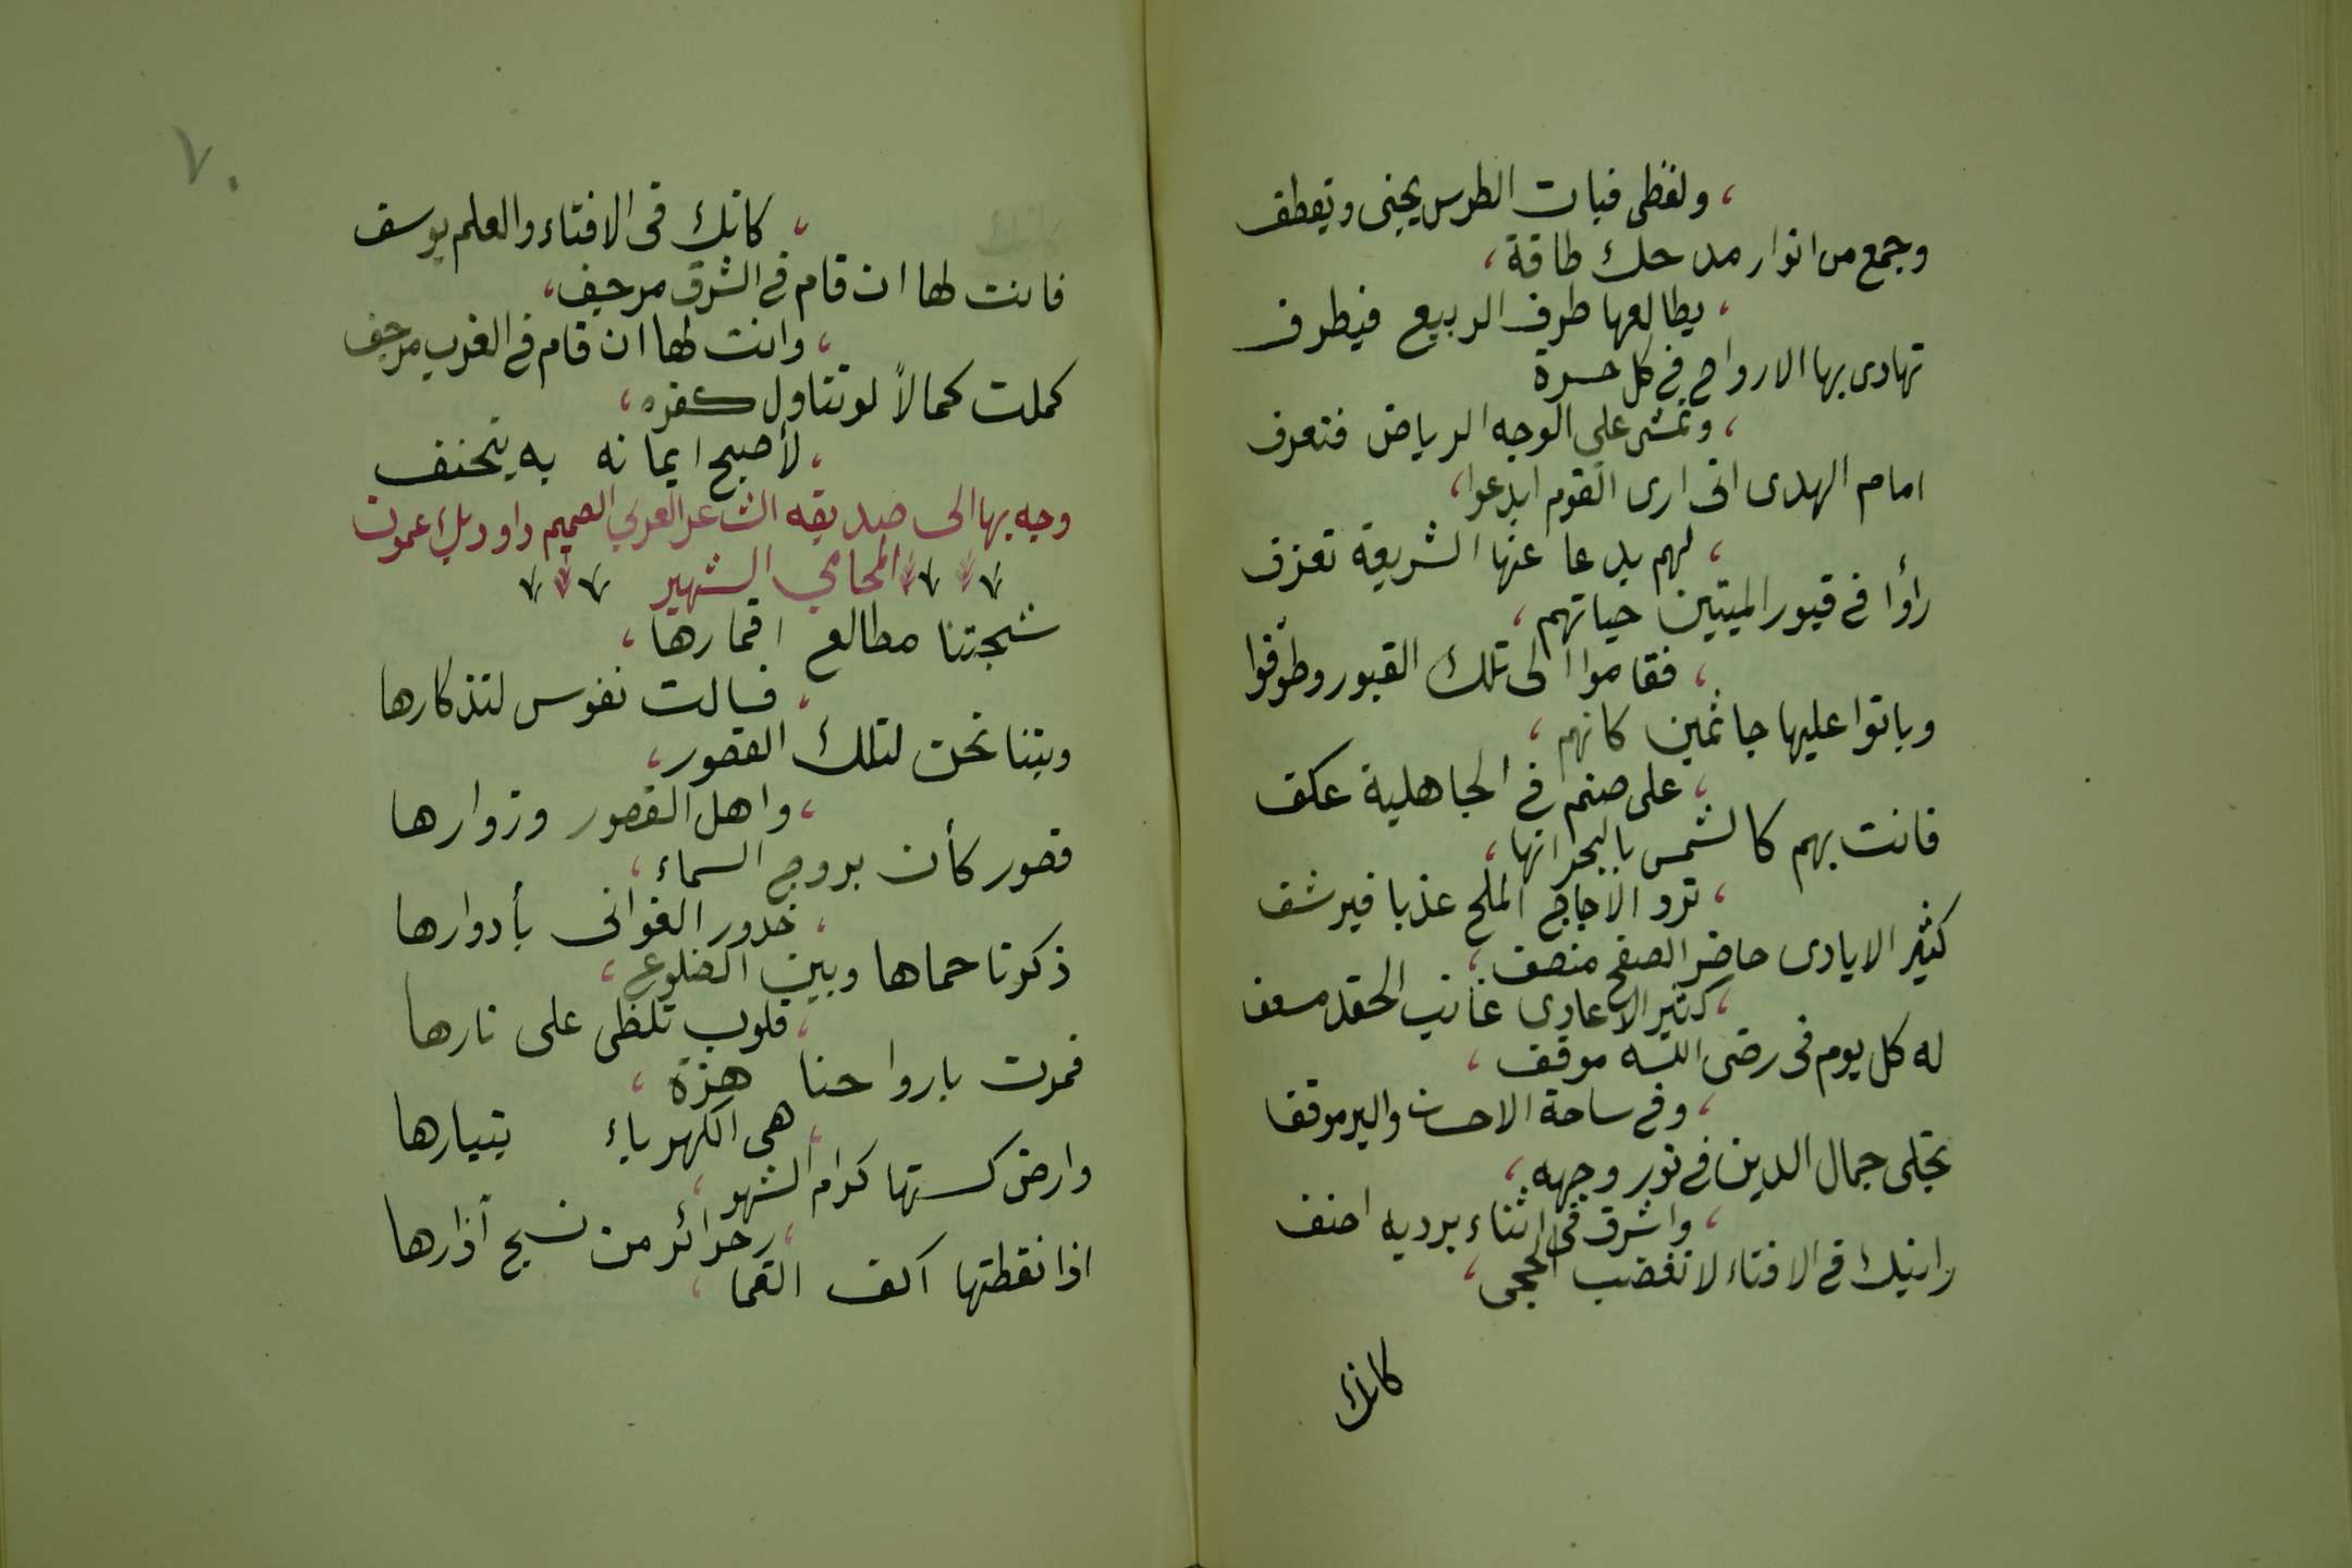 ، ولفظى فبات الطرس يجنى ويقطف
وجمع من انوار مدحك طاقة،
، يطالعها طرف الربيع فيطرف
تهادى بها الارواح فى كل سرة
، وتمشى على الوجه الرياض فتعرف
امام الهدى انى ارى القوم ابدعوا،
، لهم بدعا عنها الشريعة تعزف
رأوا فى قبور الميتين حياتهم،
، فقاموا الى تلك القبور وطوّفوا
وباتوا عليها جاثمين كانهم،
، على صنم فى الجاهلية عكف
فانت بهم كالشمس بالبحر انها،
، ترد الاجاج الملح عذبا فيرشف
كثير الايادى حاضر الصفح منصف،
، كثير الاعادى غائب الحقد مسعف
له كل يوم فى رضى الله موقف،
، وفى ساحة الاحسان والبر موقف
تجلى جمال الدين فى نور وجهه،
، واشرق فى اثناء برديه احنف
رايتك فى الافتاء لا تغضب الحجى،
كانك
٧٠
، كانك فى الافتاء والعلم يوسف
فانت لها ان قام فى الشرق مرجف،
، وانت لها ان قام فى الغرب مرجف
كملت كمالاً لو تناول كفره،
، لأصبح ايمانه به يتحنف
وجه بها الى صديقه الشاعر العربي الصميم داود بك عمون
المحامي الشهير
شجتنا مطالع اقمارها،
، فسالت نفوس لتذكارها
وبتنا نحن لتلك القصور،
، واهل القصور وزوارها
قصور كأن بروج السماء،
، خدور الغوانى بأدوارها
ذكرنا حماها وبين الضلوع،
، قلوب تلظى على نارها
فمرت بارواحنا هزة،
، هى الكهرباء بتيارها
وارض كستها كرام الشهور،
، حرائر من نسج آذارها
اذا نقطتها اكف الغما،